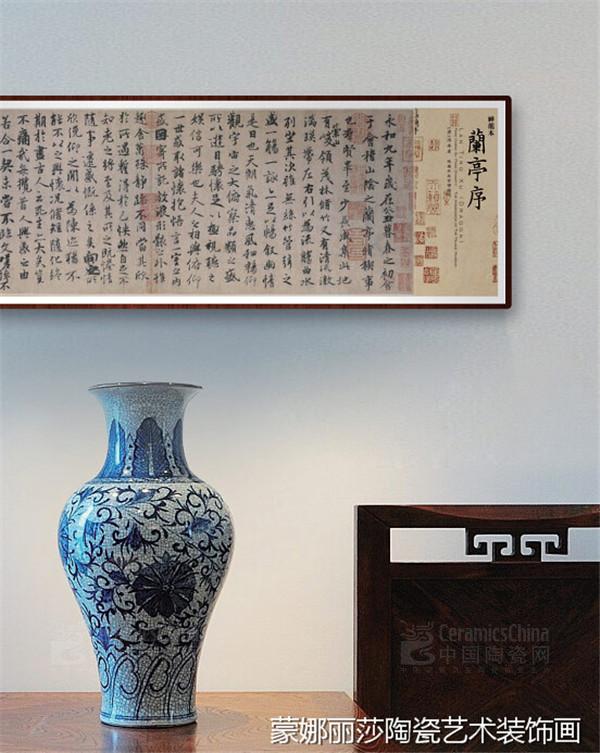 神龍本
蘭亭序
LAN TING XU
永和九年歲在癸丑暮春之初會
于會稽山陰之蘭亭脩禊事
也群賢畢至少長咸集此地
有崇山峻領茂林脩竹又有清流激
湍暎帶左右引以為流觴曲水
列坐其次雖無絲竹管弦之
盛一觴一詠亦足以暢敘幽情
是日也天朗氣清惠風和暢仰
觀宇宙之大俯察品類之盛
所以遊目騁懷足以極視聽之
娛信可樂也夫人之相與俯仰
一世或取諸懷抱悟言一室之內
或因寄所託放浪形骸之外雖
趣舍萬殊靜躁不同當其欣
於所遇暫得於己怏然自足不
知老之將至及其所之既惓情
隨事遷感慨係之矣向之所
欣俛仰之間以為陳迹猶不
能不以之興懷況脩短隨化終
期於盡古人云死生亦大矣豈
不痛哉每攬昔人興感之由
若合一契未嘗不臨文嗟悼不
CeramicsChina
中国陶瓷网
蒙娜丽莎陶瓷艺术装饰画